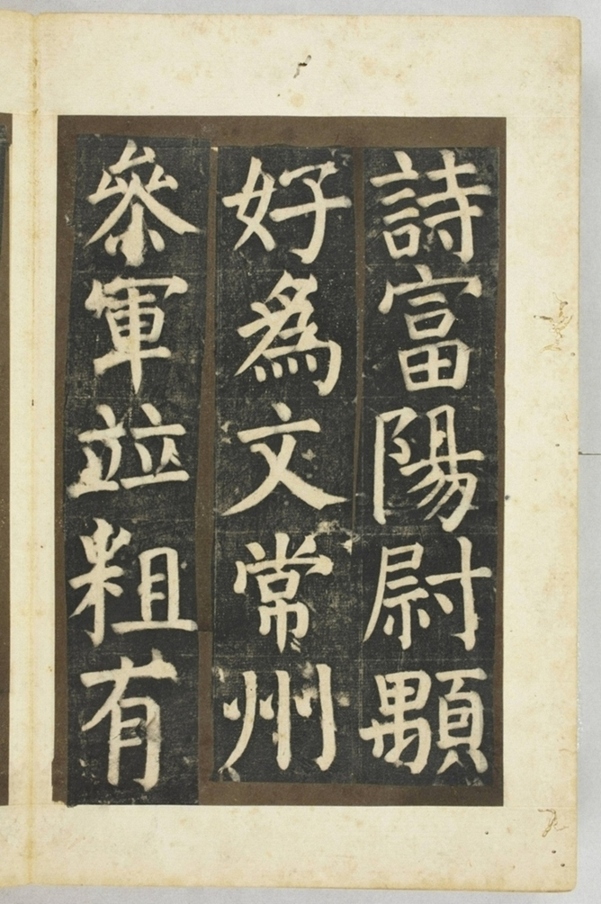 詩富陽尉顒
好爲文常州
參軍竝粗有